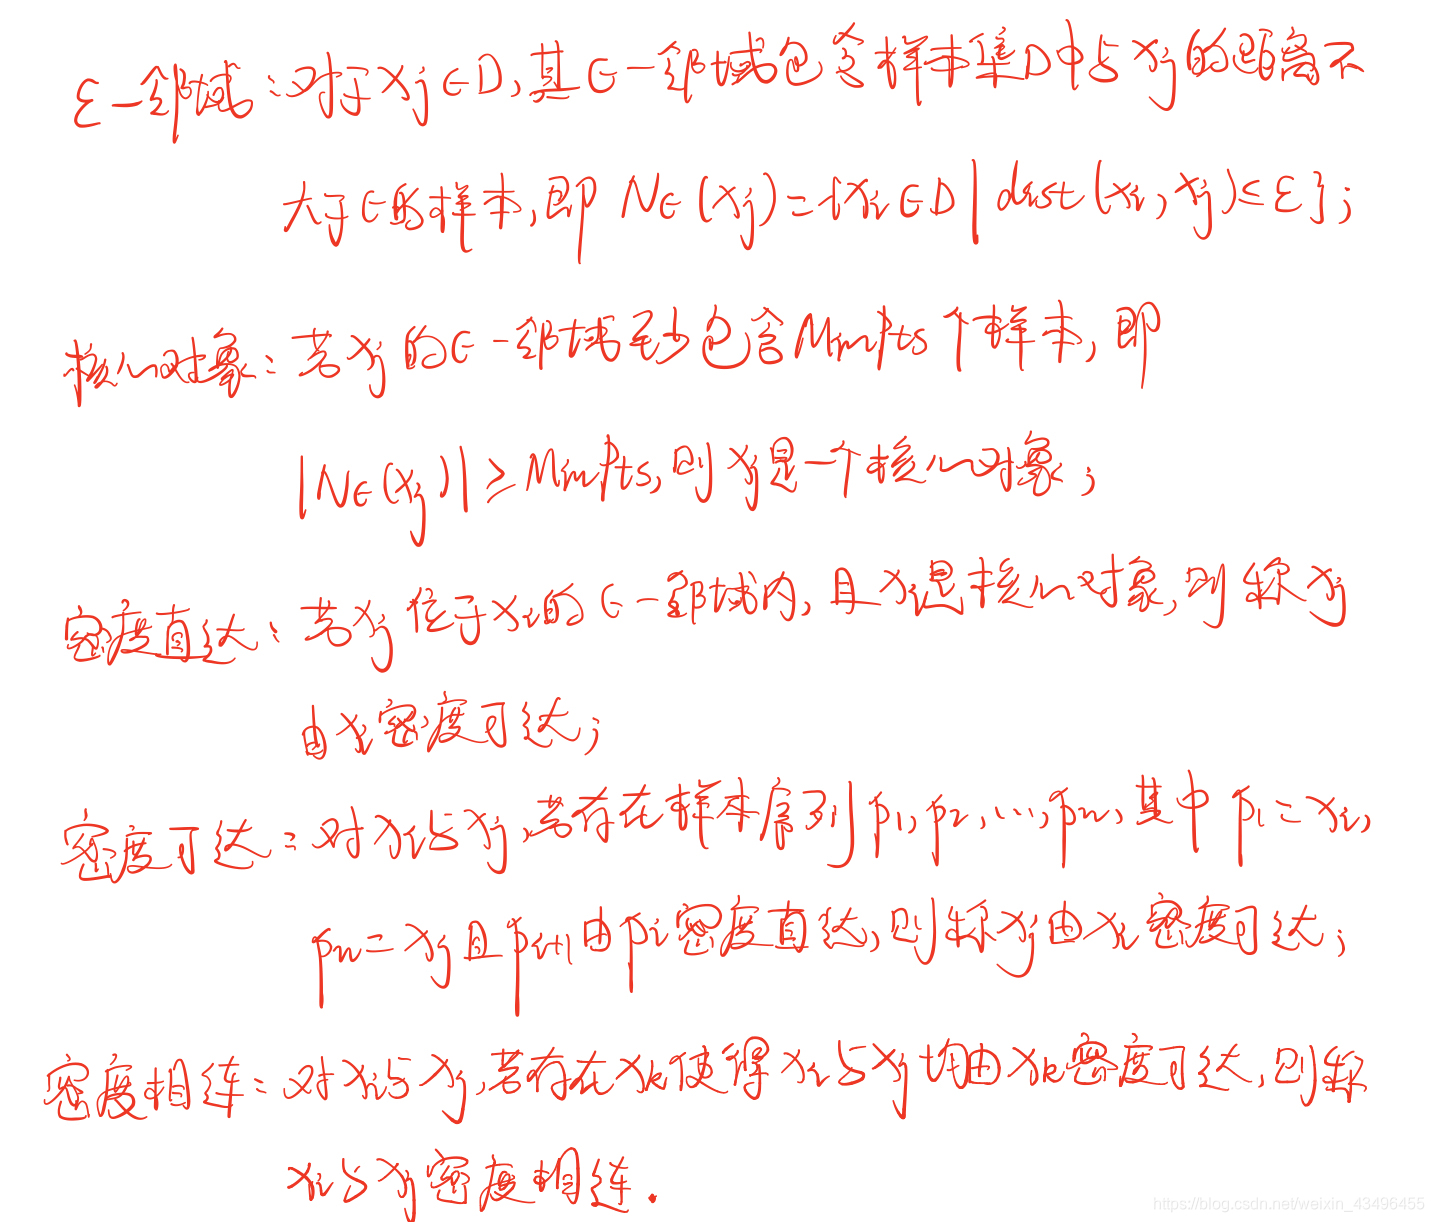 ε-邻域：对于xj∈D,其∈-邻域包含样本集D中与xj的距离不
大于∈的样本,即 N∈(xj)={xi∈D|dist(xi,xj)≤ε};
核心对象：若xj的∈-邻域至少包含MinPts个样本,即
|N∈(xj)|≥MinPts,则xj是一个核心对象;
密度直达：若xj位于xi的∈-邻域内,且xi是核心对象,则称xj
由xi密度可达;
密度可达：对xi与xj,若存在样本序列p1,p2,...,pn,其中p1=xi,
pn=xj且pi+1由pi密度直达,则称xj由xi密度可达;
密度相连：对xi与xj,若存在xk使得xi与xj均由xk密度可达,则称
xi与xj密度相连.
https://blog.csdn.net/weixin_43496455